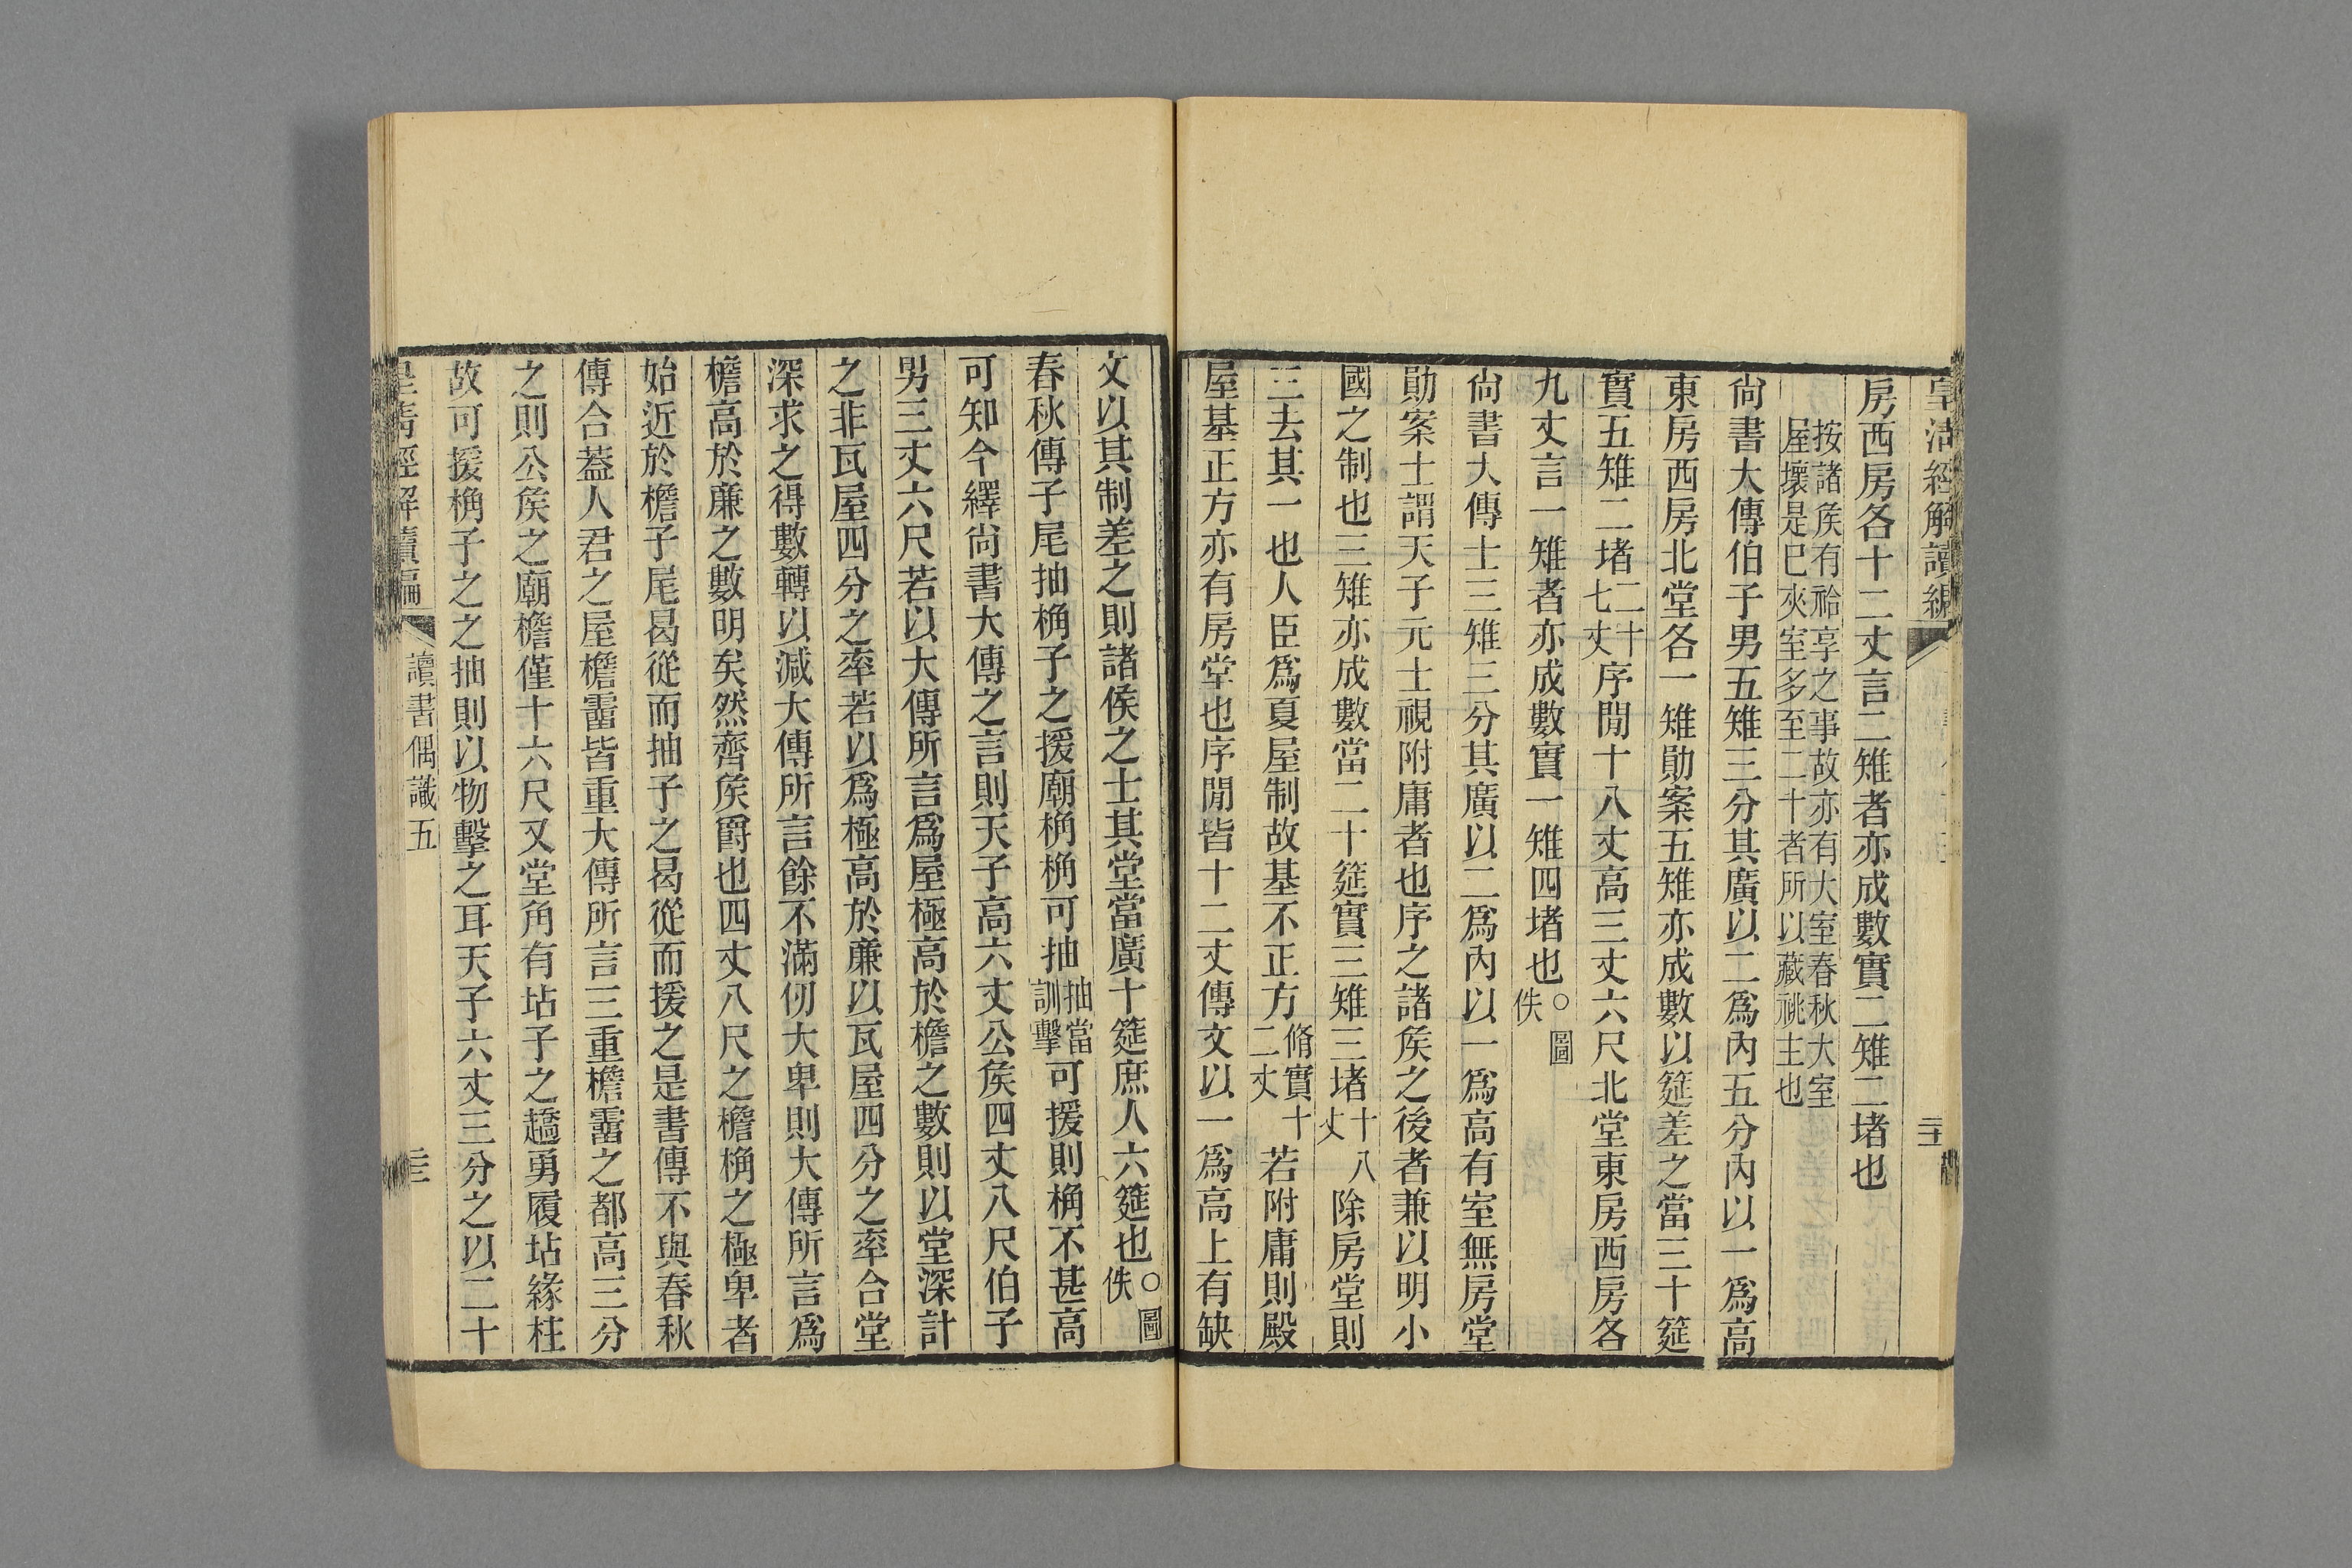 皇清經解續編
房西房各十二丈言二雉者亦成數實二雉二堵也
按諸矦有祫享之事故亦有大室春秋大室
屋壞是已夾室多至二十者所以藏祧主也
尙書大傳伯子男五雉三分其廣以二爲內五分內以一爲高
東房西房北堂各一雉勛案五雉亦成數以筵差之當三十筵
實五雉二堵二十七丈序閒十八丈高三丈六尺北堂東房西房各
九丈言一雉者亦成數實一雉四堵也○圖佚
尙書大傳士三雉三分其廣以二爲內以一爲高有室無房堂
勛案士謂天子元士視附庸者也序之諸矦之後者兼以明小
國之制也三雉亦成數當二十筵實三雉三堵十八丈除房堂則
三去其一也人臣爲夏屋制故基不正方脩實十二丈若附庸則殿
屋基正方亦有房堂也序閒皆十二丈傳文以一爲高上有缺
文以其制差之則諸侯之士其堂當廣十筵庶人六筵也○圖佚
春秋傳子尾抽桷子之援廟桷桷可抽抽當訓擊可援則桷不甚高
可知今繹尙書大傳之言則天子高六丈公矦四丈八尺伯子
男三丈六尺若以大傳所言爲屋極高於檐之數則以堂深計
之非瓦屋四分之率若以爲極高於廉以瓦屋四分之率合堂
深求之得數轉以減大傳所言餘不滿仞大卑則大傳所言爲
檐高於廉之數明矣然齊矦爵也四丈八尺之檐桷之極卑者
始近於檐子尾曷從而抽子之曷從而援之是書傳不與春秋
傳合葢人君之屋檐霤皆重大傳所言三重檐霤之都高三分
之則公矦之廟檐僅十六尺又堂角有坫子之趫勇履坫緣柱
故可援桷子之之抽則以物擊之耳天子六丈三分之以二十
讀書偶識五